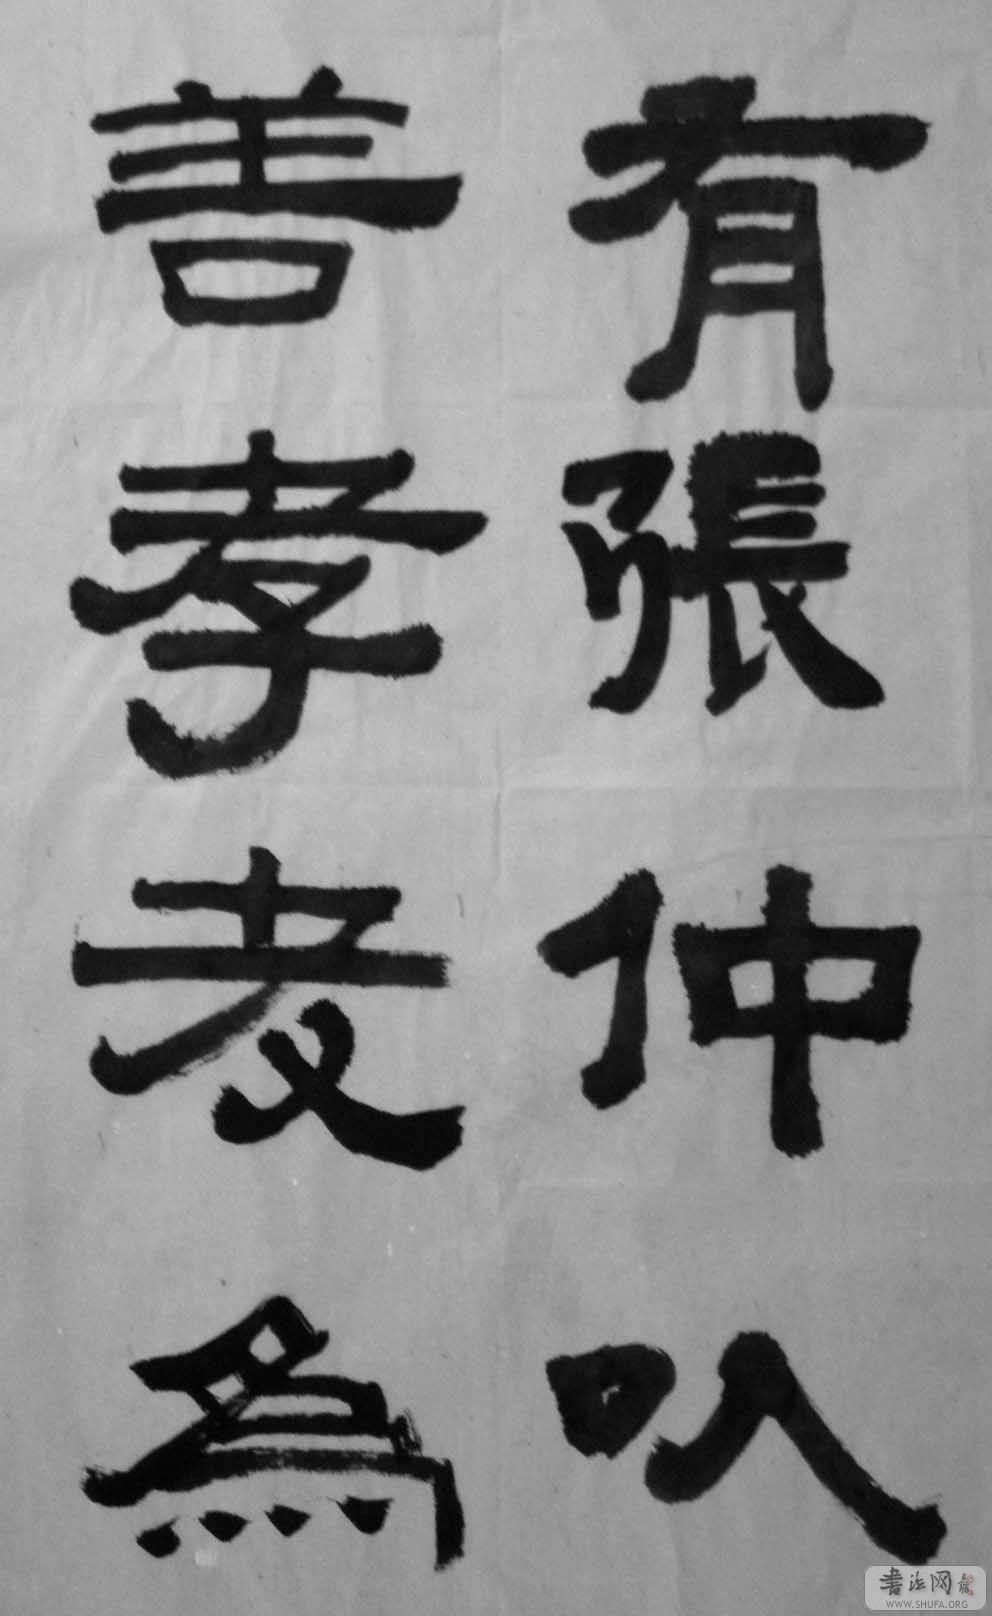 有張仲以
善孝友為
書法网
WWW.SHUFA.ORG